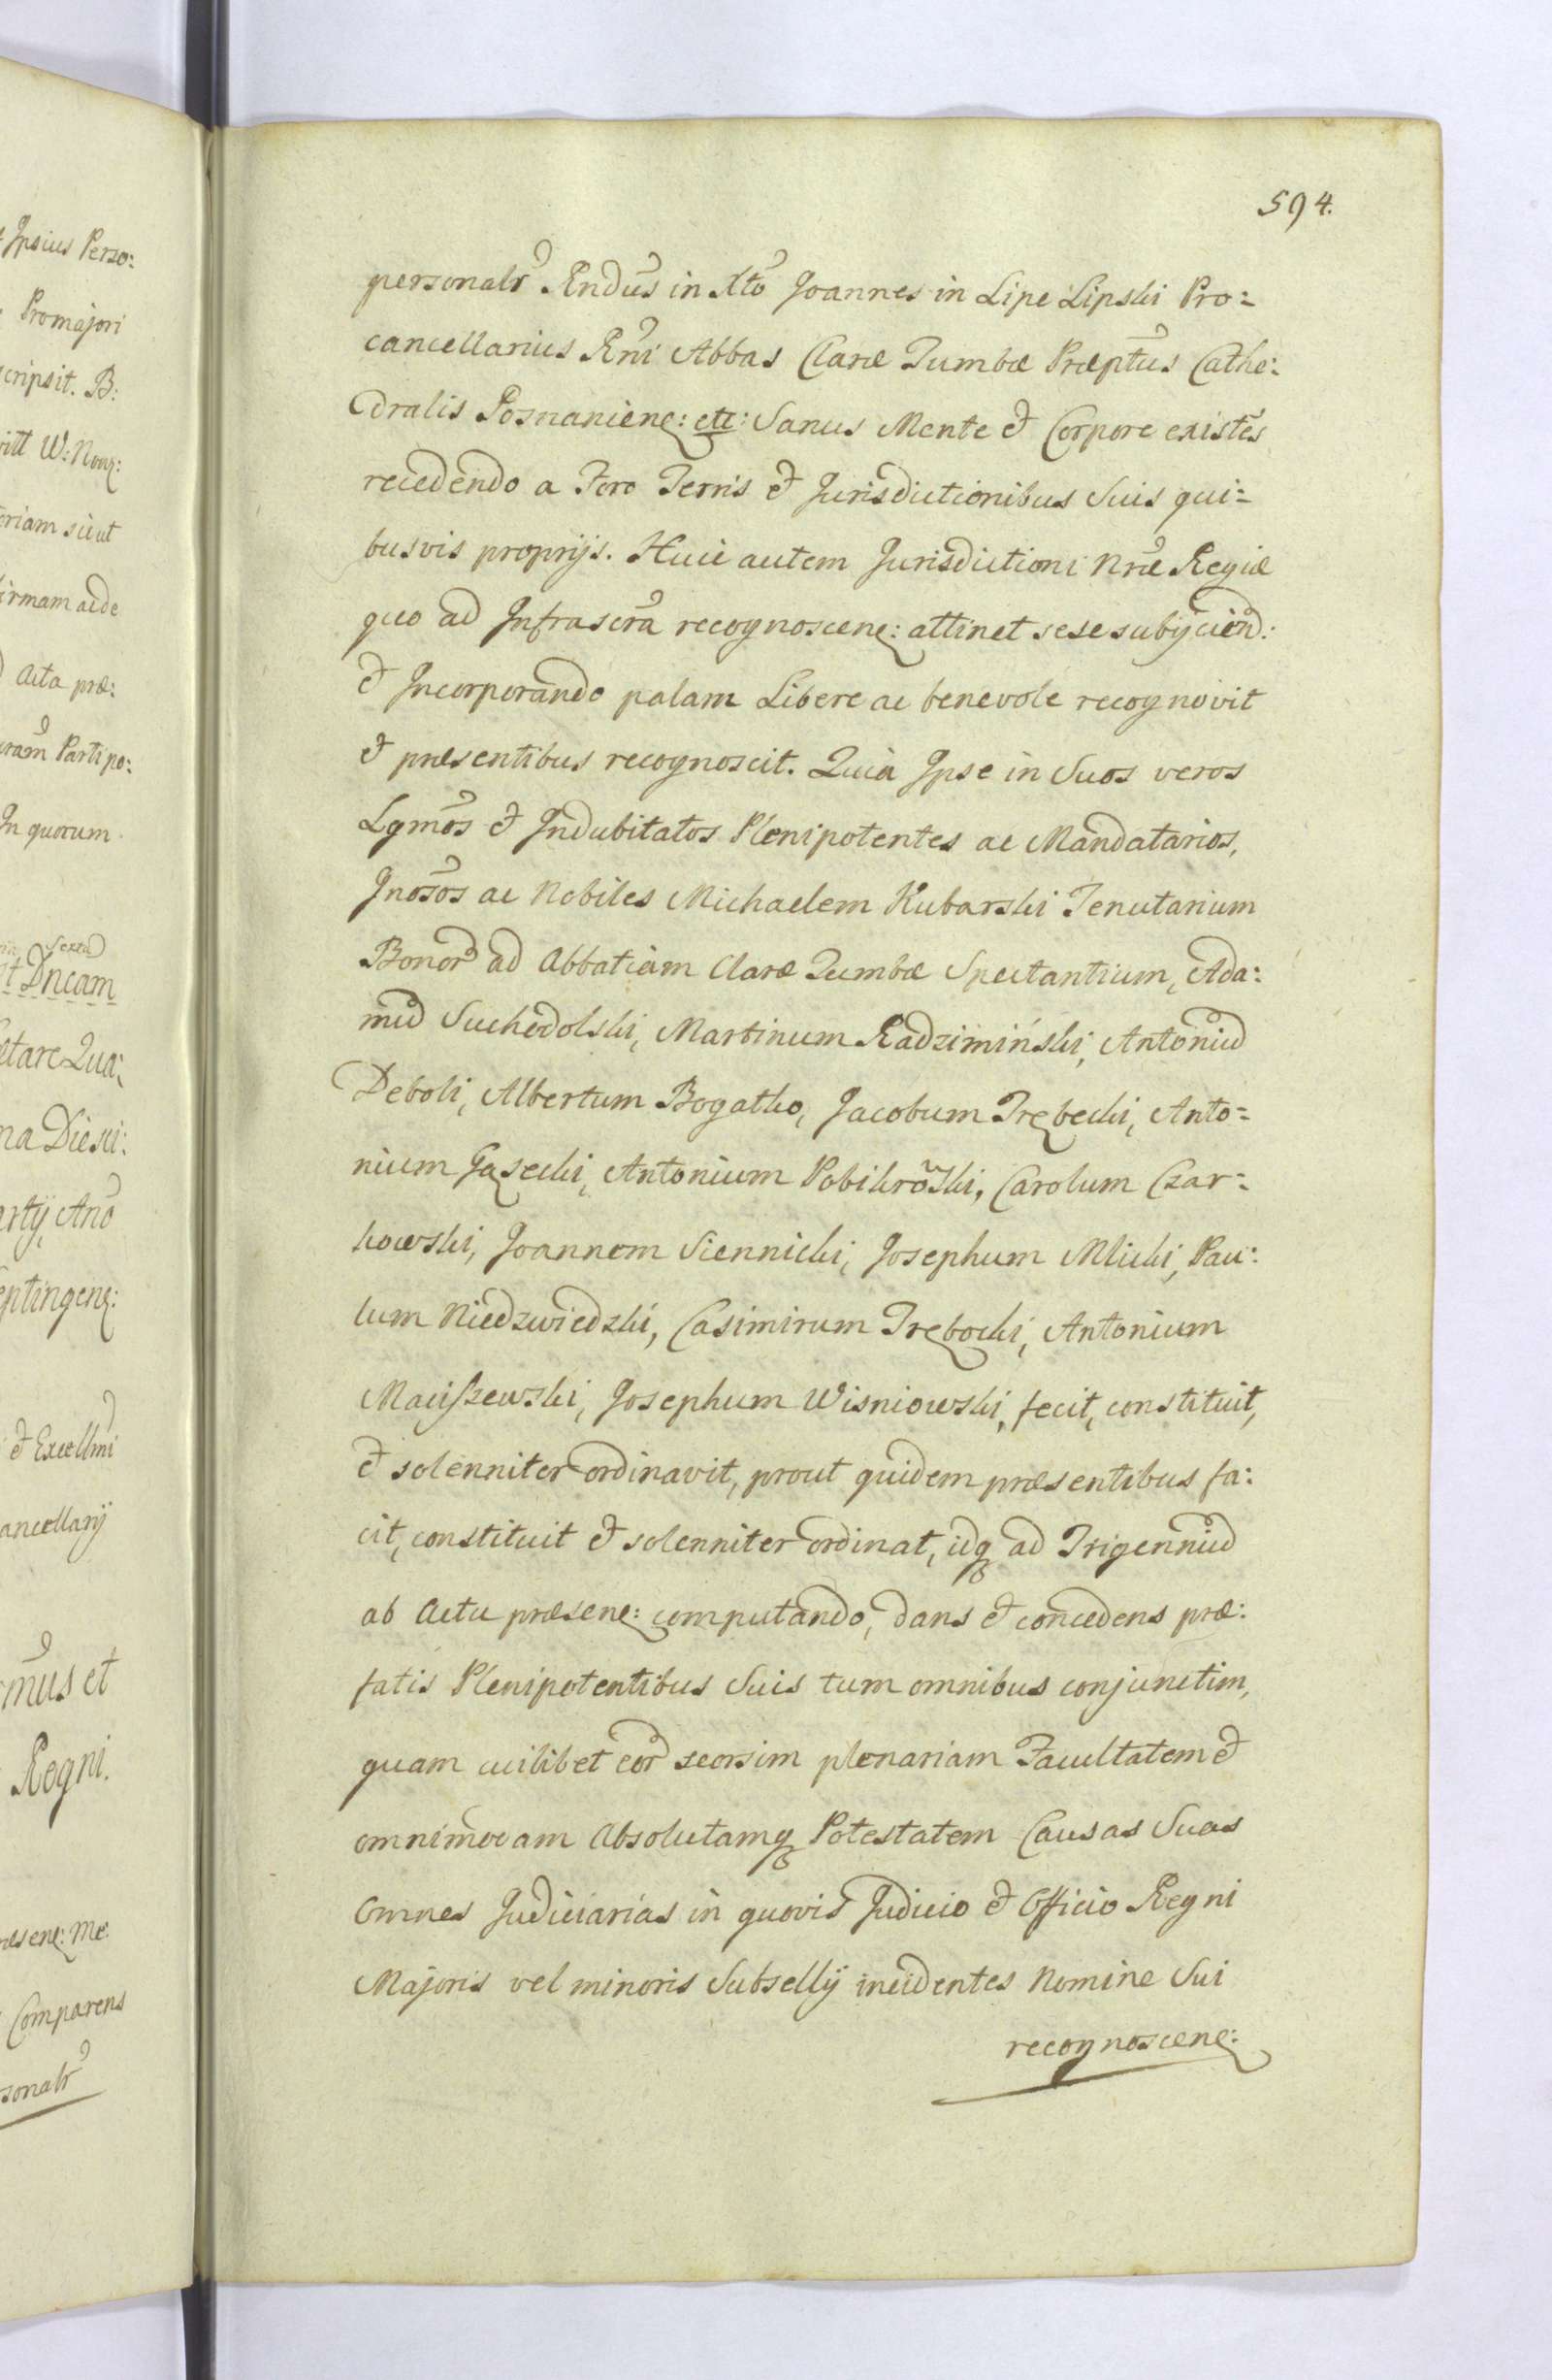 594.
personalr Rndus in Xto Joannes in Lipe Lipski Pro=
cancellarius Rni Abbas Claræ Tumbæ Præptus Cathe:
dralis Posnaniene: etc: Sanus Mente et Corpore existes
recedendo a Foro Terris et Jurisdictionibus Suis qui=
busvis proprijs. Huic autem Jurisdictioni Nræ Regiæ
quo ad Infrascra recognoscene: attinet sese subijciend:
et Incorporando palam Libere ac benevole recognovit
et præsentibus recognoscit. Quia Ipse in Suos veros
Lgmos et Indubitatos Plenipotentes ac Mandatarios,
Gnosos ac Nobiles Michaelem Kubarski Tenutarium
Bonor ad Abbatiam Claræ Tumbæ Spectantium, Ada:
mu Suchodolski, Martinum Radzimiński, Antoniu
Deboli, Albertum Bogatko, Jacobum Trębecki, Anto=
nium Gąsecki, Antonium Pobikroski, Carolum Czar=
kowski, Joannem Siennicki, Josephum Mlicki, Pau:
lum Niedzwiedzki, Casimirum Trębocki, Antonium
Maciszewski, Josephum Wisniowski, fecit, constituit,
et solenniter ordinavit, prout quidem præsentibus fa:
cit, constituit et solenniter ordinat, idq ad Trigenniu
ab Actu præsene: computando, dans et concedens præ:
fatis Plenipotentibus Suis tum omnibus conjunctim,
quam cuilibet eor seorsim plenariam Facultatem et
omnimodam Absolutamq Potestatem Causas Suas
Omnes Judiciarias in quovis Judicio et Officio Regni
Majoris vel minoris Subsellij incidentes Nomine Sui
recognoscene: